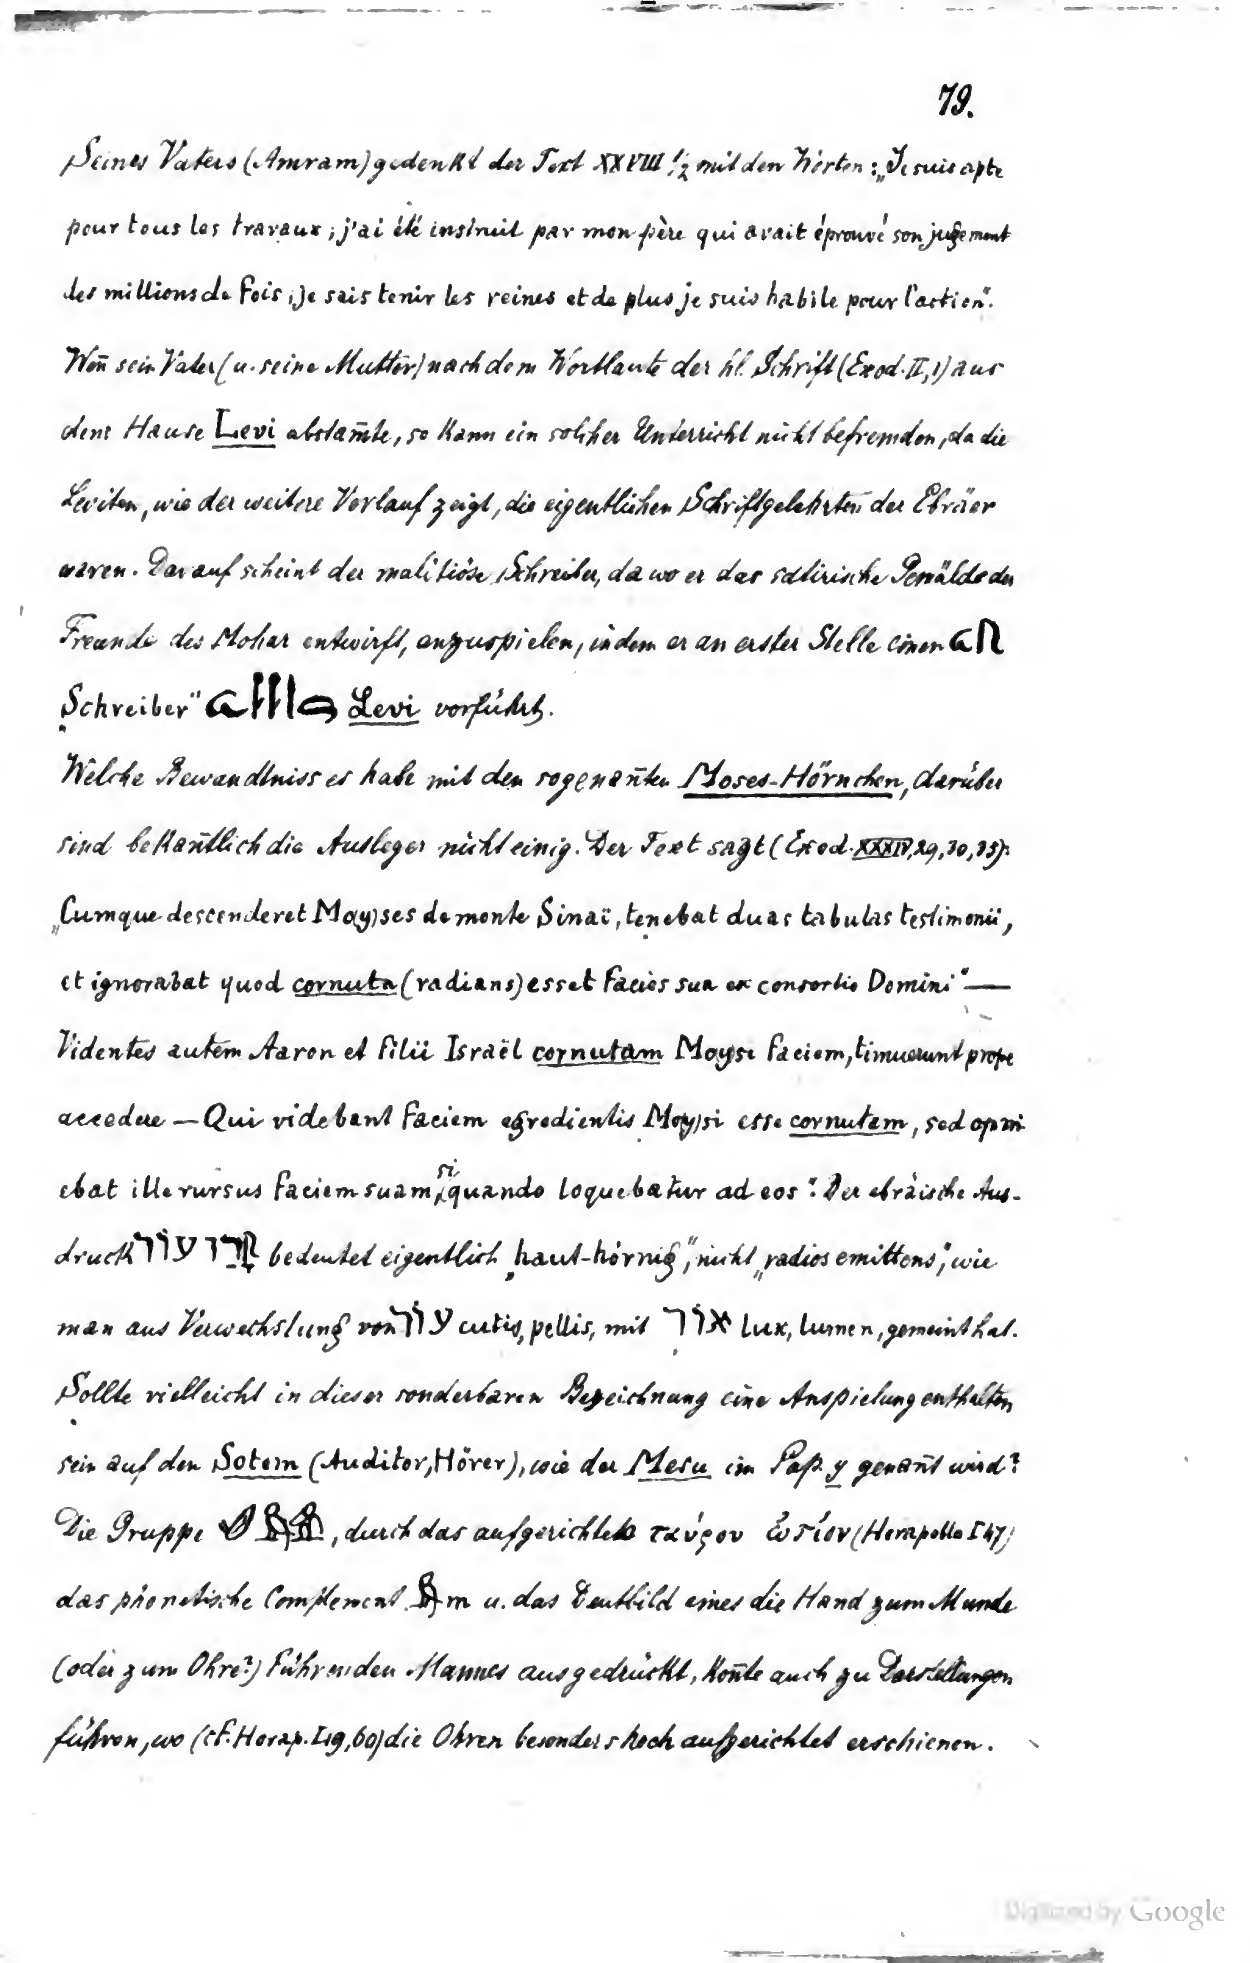 79.
Seines Vaters (Amram) gedenkt der Text XXVIII 1/2 mit den Worten: „Je suis apte
pour tous les travaux; j'ai été instruit par mon père qui avait éprouvé son jugement
des millions de fois; je sais tenir les reines et de plus je suis habile pour l'action".
Weñ sein Vater (u. seine Mutter) nach dem Wortlaute der hl. Schrift (Exod. II, 1) aus
dem Hause Levi abstam̄te, so kann ein solcher Unterricht nicht befremden, da die
Leviten, wie der weitere Verlauf zeigt, die eigentlichen Schriftgelehrten der Ebräer
waren. Darauf scheint der malitiöse Schreiber, da wo er das satirische Gemälde der
Freunde des Mohar entwirft, anzuspielen, indem er an erster Stelle einen
„Schreiber" Levi vorführt.
Welche Bewandtniss es habe mit den sogenañten Moses-Hörnchen, darüber
sind bekañtlich die Ausleger nicht einig. Der Text sagt (Exod. XXXIV, 29, 30, 35):
„Cumque descenderet Moyses de monte Sinaï, tenebat duas tabulas testimonii,
et ignorabat quod cornuta (radians) esset facies sua ex consortio Domini" —
Videntes autem Aaron et filii Israël cornutam Moysi faciem, timuerunt prope
accedere — Qui videbant faciem egredientis Moysi esse cornutam, sed operi-
ebat ille rursus faciem suam, si quando loquebatur ad eos". Der ebräische Aus-
druck קרן עור bedeutet eigentlich „haut-hörnig", nicht „radios emittens", wie
man aus Verwechslung von עור cutis, pellis, mit אור lux, lumen, gemeint hat.
Sollte vielleicht in dieser sonderbaren Bezeichnung eine Anspielung enthalten
sein auf den Sotem (Auditor, Hörer), wie der Mesu im Pap. y genañt wird?
Die Gruppe , durch das aufgerichtete ταύρου ὠτίον (Horapollo I 47)
das phonetische Complement m u. das Deutbild eines die Hand zum Munde
(oder zum Ohre?) führenden Mannes ausgedrückt, koñte auch zu Darstellungen
führen, wo (cf. Horap. I 19, 60) die Ohren besonders hoch aufgerichtet erschienen.
Digitized by Google